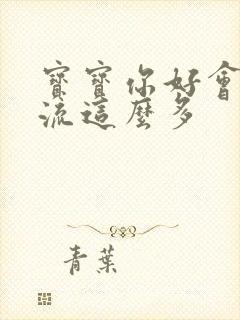 寶寶你好會
流這麼多
青葉